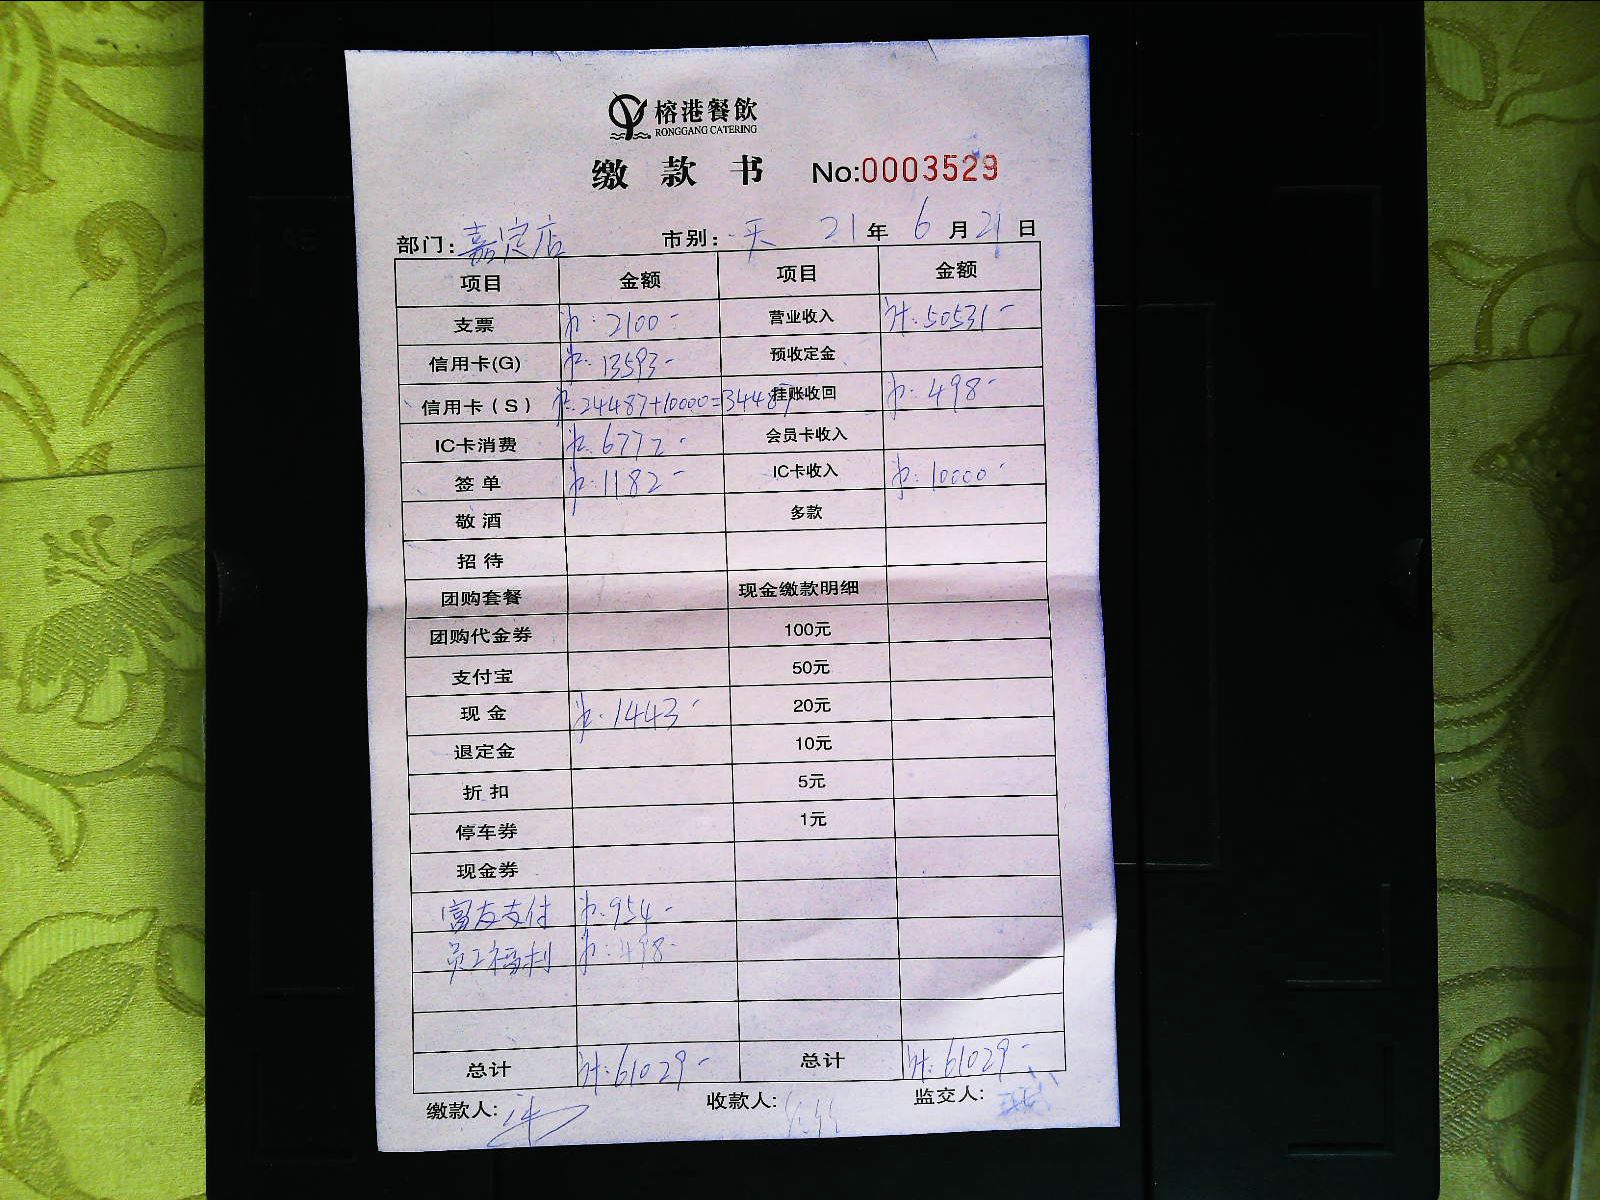 榕港餐飲
RONGGANG CATERING
缴 款 书 No:0003529
部门: 嘉定店 市别: 一天 21 年 6 月 21 日
项目 金额 项目 金额
支票 计: 2100- 营业收入 计: 50531-
信用卡(G) 计: 13593- 预收定金
信用卡（S） 计: 24487+10000=34487 挂账收回 计: 498-
IC卡消费 计: 6772- 会员卡收入
签单 计: 1182- IC卡收入 计: 10000-
敬酒 多款
招待
团购套餐 现金缴款明细
团购代金券 100元
支付宝 50元
现金 计: 1443- 20元
退定金 10元
折扣 5元
停车券 1元
现金券
富友支付 计: 954-
员工福利 计: 498-
总计 计: 61029- 总计 计: 61029-
缴款人: 收款人: 监交人: